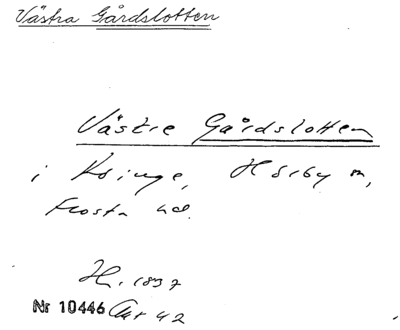 Västra Gårdslotten
Västre Gårdslotten
i Köinge, Hörby sn,
Frosta hd.
H. 1897
Nr 10446 Akt 42